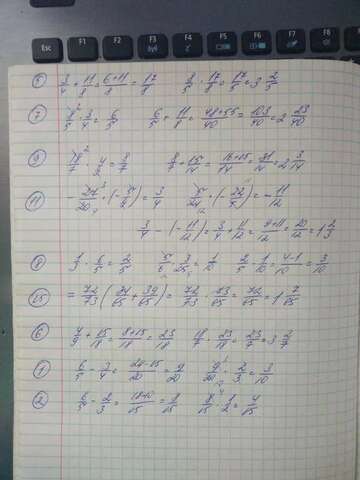 Esc F1 F2 F3 F4 F5 F6 F7 F8
5 3/4 + 11/8 = (6+11)/8 = 17/8 8/5 · 17/8 = 17/5 = 3 2/5
7 8/5 · 3/4 = 6/5 6/5 + 11/8 = (48+55)/40 = 103/40 = 2 23/40
9 18/7 · 4/9 = 8/7 8/7 + 15/14 = (16+15)/14 = 31/14 = 2 3/14
11 -27/20 · (-5/9) = 3/4 5/24 · (-22/5) = -11/12
3/4 - (-11/12) = 3/4 + 11/12 = (9+11)/12 = 20/12 = 1 2/3
8 1/3 · 6/5 = 2/5 5/6 · 3/25 = 1/10 2/5 - 1/10 = (4-1)/10 = 3/10
15 = 72/73 (34/65 + 39/65) = 72/73 · 73/65 = 72/65 = 1 7/65
6 4/9 + 15/18 = (8+15)/18 = 23/18 18/7 · 23/18 = 23/7 = 3 2/7
1 6/5 - 3/4 = (24-15)/20 = 9/20 9/20 · 2/3 = 3/10
2 6/5 - 2/3 = (18-10)/15 = 8/15 8/15 · 1/2 = 4/15